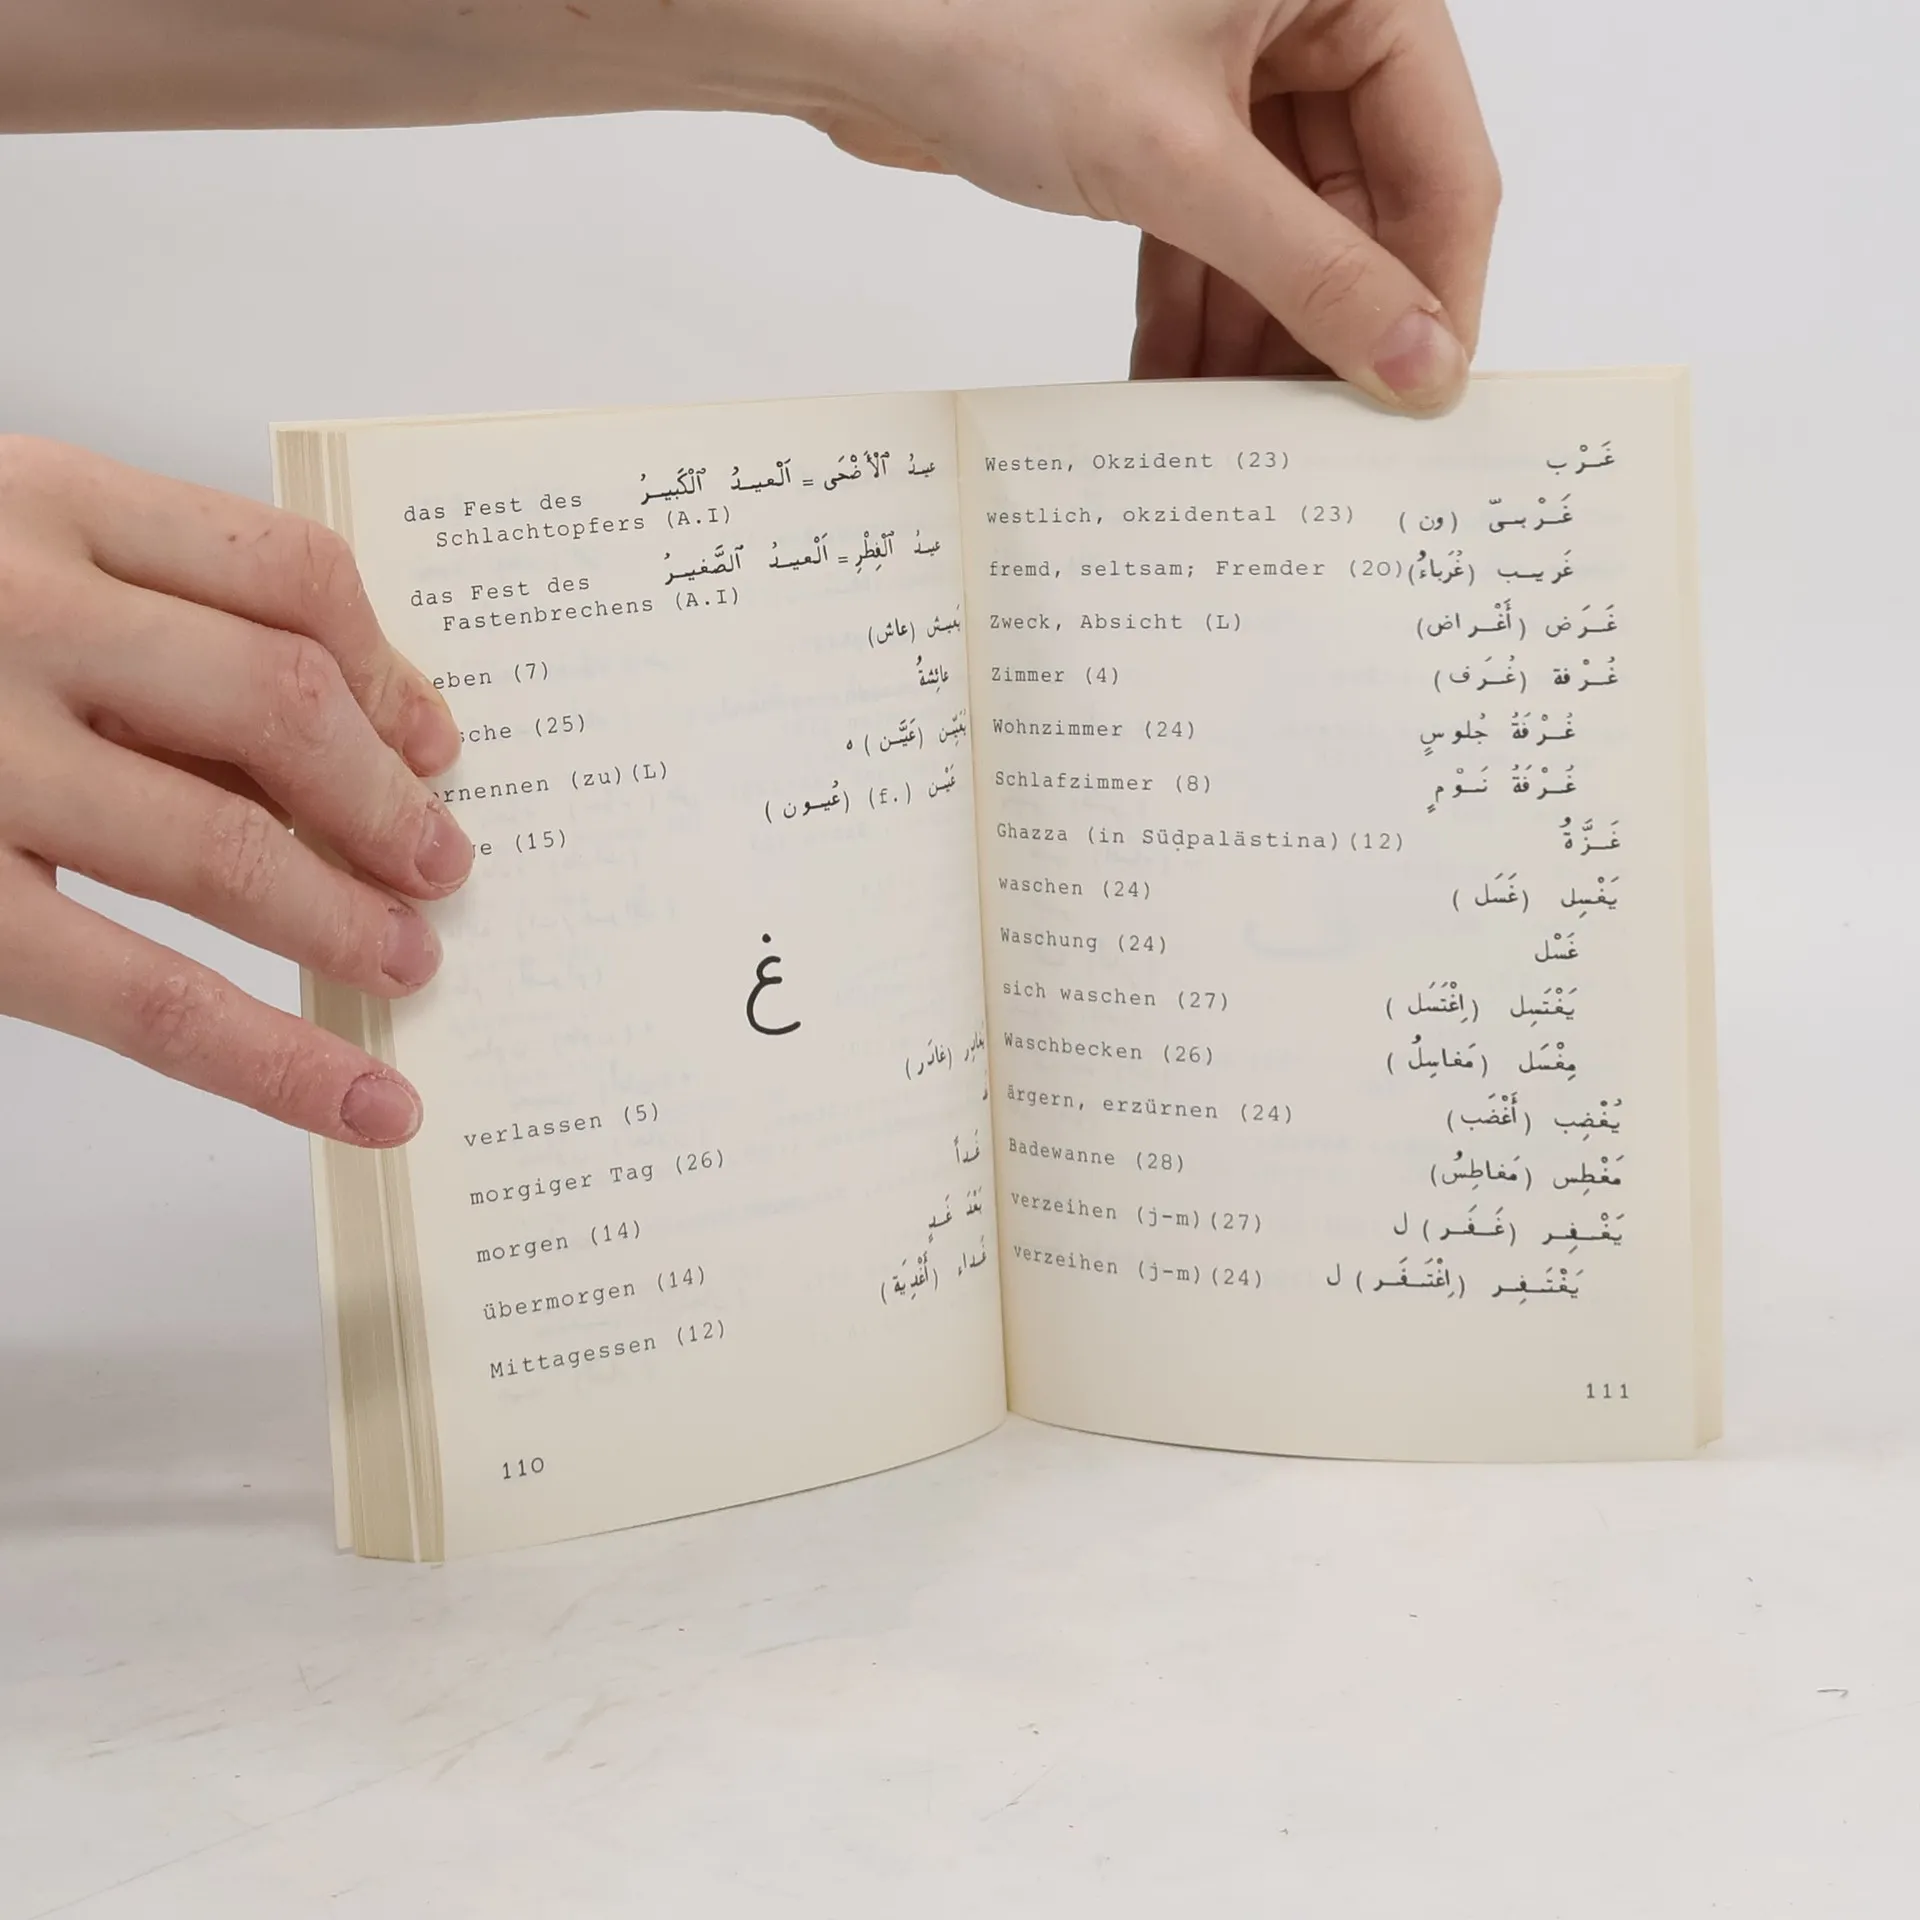 das Fest des عيدُ ٱلْأَضْحَى = اَلْعيدُ ٱلْكَبيرُ
Schlachtopfers (A.I)
das Fest des عيدُ ٱلْفِطْرِ = اَلْعيدُ ٱلصَّغيرُ
Fastenbrechens (A.I)
eben (7) يَعيش (عاش)
sche (25) عائِشةُ
rnennen (zu)(L) يُعَيِّن (عَيَّن) ه
ge (15) عَيْن (f.) (عُيون)
غ
verlassen (5) يُغادِر (غادَر)
morgiger Tag (26)
morgen (14) غَداً
übermorgen (14) بَعْدَ غَدٍ
Mittagessen (12) غَداء (أَغْدِيَة)
110
Westen, Okzident (23) غَرْب
westlich, okzidental (23) غَرْبيّ (ون)
fremd, seltsam; Fremder (20) غَريب (غُرَباءُ)
Zweck, Absicht (L) غَرَض (أَغْراض)
Zimmer (4) غُرْفة (غُرَف)
Wohnzimmer (24) غُرْفةُ جُلوسٍ
Schlafzimmer (8) غُرْفةُ نَوْمٍ
Ghazza (in Südpalästina)(12) غَزَّةُ
waschen (24) يَغْسِل (غَسَل)
Waschung (24) غَسْل
sich waschen (27) يَغْتَسِل (اِغْتَسَل)
Waschbecken (26) مِغْسَل (مَغاسِلُ)
ärgern, erzürnen (24) يُغْضِب (أَغْضَب)
Badewanne (28) مَغْطِس (مَغاطِسُ)
verzeihen (j-m)(27) يَغْفِر (غَفَر) ل
verzeihen (j-m)(24) يَغْتَفِر (اِغْتَفَر) ل
111